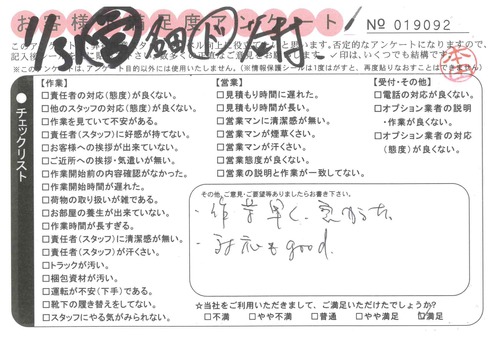 お客様満足度アンケート
No 019092
このアンケートは
に役立てたいと思います。否定的なアンケートになりますので、
記入後
☑印は、いくつでも結構です。
※このアンケートは、アンケート目的以外には使用いたしません。(※情報保護シールは1度はがすと、再度貼りなおすことはできません)
チェックリスト
【作業】
□責任者の対応(態度)が良くない。
□他のスタッフの対応(態度)が良くない。
□作業を見ていて不安がある。
□責任者(スタッフ)に好感が持てない。
□お客様への挨拶が出来ていない。
□ご近所への挨拶・気遣いが無い。
□作業開始前の内容確認がなかった。
□作業開始時間が遅れた。
□荷物の取り扱いが雑である。
□お部屋の養生が出来ていない。
□作業時間が長すぎる。
□責任者(スタッフ)に清潔感が無い。
□責任者(スタッフ)が汗くさい。
□トラックが汚い。
□梱包資材が汚い。
□運転が不安(下手)である。
□靴下の履き替えをしてない。
□スタッフにやる気がみられない。
【営業】
□見積もり時間に遅れた。
□見積もり時間が長い。
□営業マンに清潔感が無い。
□営業マンが煙草くさい。
□営業マンが汗くさい。
□営業態度が良くない。
□営業の説明と作業が一致してない。
【受付・その他】
□電話の対応が良くない。
□オプション業者の説明
・作業が良くない。
□オプション業者の対応
(態度)が良くない。
その他、ご意見・ご要望等ありましたらお書き下さい。
・作業早く、
・対応もgood.
☆当社をご利用いただきまして、ご満足いただけたでしょうか?
□不満 □やや不満 □普通 □やや満足 ☑満足